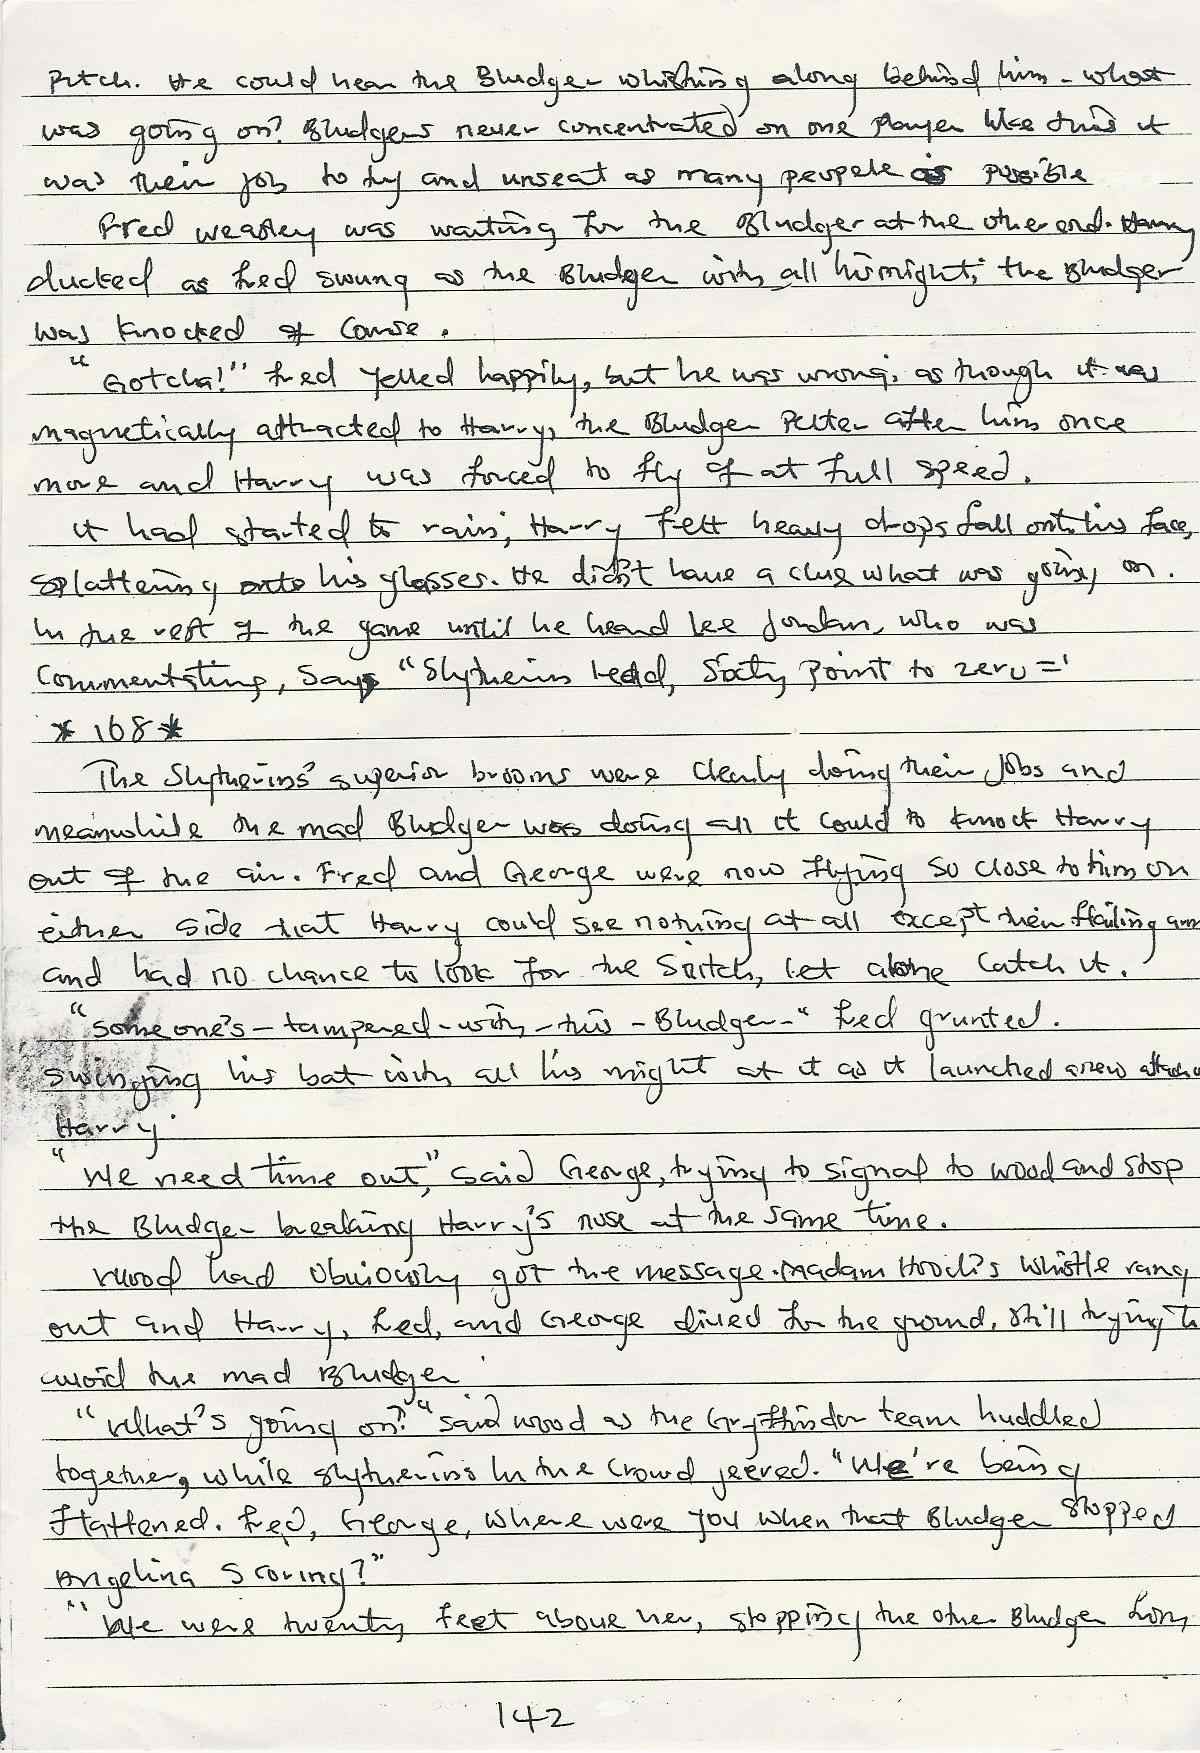 Pitch. He could hear the Bludger whistling along behind him - what
was going on? Bludgers never concentrated on one player like this it
was their job to try and unseat as many people as possible
Fred weasley was waiting for the Bludger at the other end. Harry
ducked as Fred swung as the Bludger with all his might; the Bludger
was knocked of Course.
"Gotcha!" Fred Yelled happily, but he was wrong; as though it was
magnetically attracted to Harry, the Bludger Pelter after him once
more and Harry was forced to fly of at full speed.
it had started to rain; Harry felt heavy drops fall onto his face,
splattering onto his glasses. He didn't have a clue what was going on.
In the rest of the game until he heard Lee Jordan, who was
Commentating, say "Slytherin lead, Sixty point to zero ='
*168*
The Slytherins' superior brooms were clearly doing their jobs and
meanwhile the mad Bludger was doing all it could to knock Harry
out of the air. Fred and George were now flying so close to him on
either side that Harry could see nothing at all except their flailing arm
and had no chance to look for the Snitch, let alone catch it.
"someone's - tampered - with - this - Bludger -" Fred grunted.
swinging his bat with all his might at it as it launched a new attack
Harry.
"We need time out," said George, trying to signal to wood and stop
the Bludger breaking Harry's nose at the same time.
Wood had obviously got the message. Madam Hooch's whistle rang
out and Harry, Fred, and George dived for the ground, still trying to
avoid the mad Bludger.
"What's going on?" said wood as the Gryffindor team huddled
together, while slytherins In the crowd jeered. "We're being
flattened. Fred, George, where were you when that Bludger stopped
Angelina scoring?"
"We were twenty feet above her, stopping the other Bludger from
142